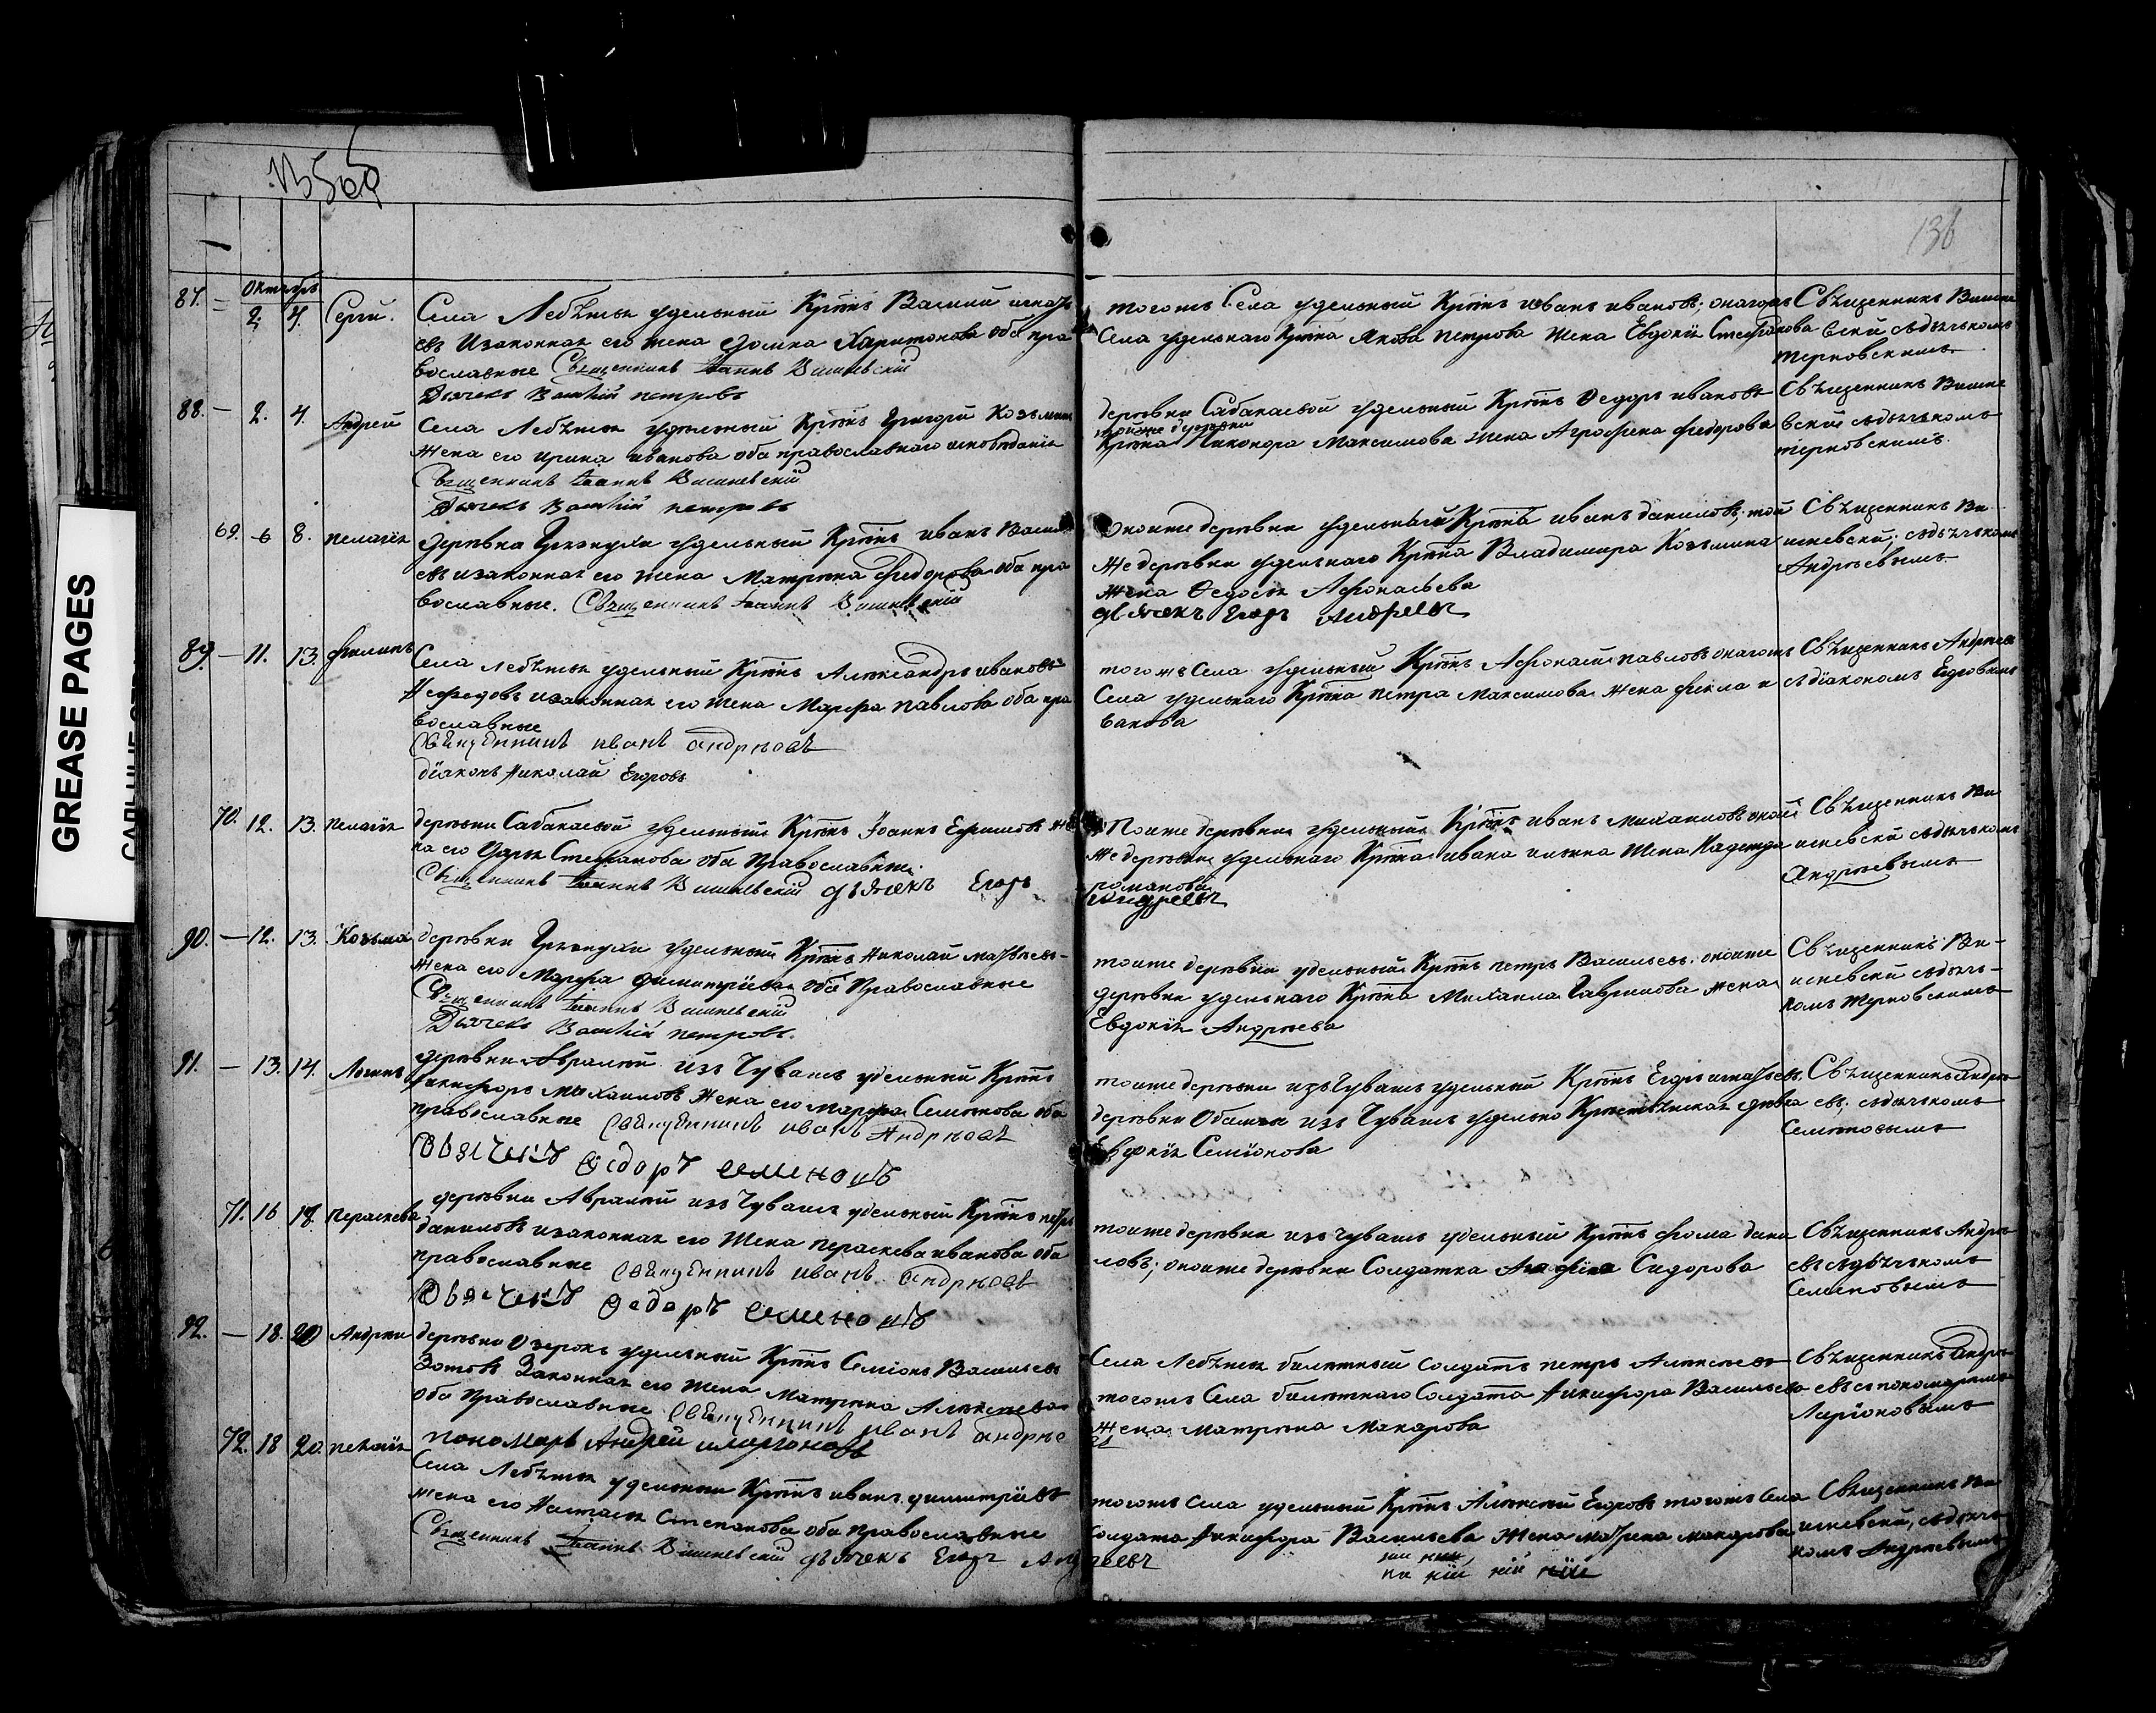 136
Октябрь
87. — 2. 4. Сергiй. Села Лебѣжья удельный Крѣнъ Василий игнать
евъ Изаконная его жена Домна Харитонова оба пра
вославные Священникъ Iоаннъ Вишневскiй
Дьячекъ Василiй петровъ
тогожъ Села удельный Крѣнъ иванъ ивановъ; онагожъ
Села удельнаго Крѣна Якова петрова жена Евдокiя Стефанова
Священникъ Вишне
вскiй съдьячькомъ
терновскимъ.
88. — 2. 4. Андрей Села Лебѣжья удельный Крѣнъ Григорiй Козьминъ
жена его ирина иванова оба православнаго исповѣданiя
Священникъ Iоаннъ Вишневскiй
Дьячекъ Василiй петровъ
деревни Сабакаевой удельный Крѣнъ Ѳедоръ ивановъ
тойже деревни
Крѣна Никонора Максимова жена Агрофена федорова
Священникъ Вишне
вскiй съдьячькомъ
терновскимъ.
69. 6 8. пелагiя деревни удельный Крѣнъ иванъ Василь
евъ изаконная его жена Матрена Федорова оба пра
вославные. Священникъ Iоаннъ Вишневскiй
оноиже деревни удельный Крѣнъ иванъ даниловъ; той
же деревни удельнаго Крѣна Владимира Козьмина
жена Ѳедосья Афонасьева
дьячекъ Егоръ Андреевъ
Священникъ Ви
шневскiй; съдьячькомъ
Андреевымъ.
89. — 11. 13. филипъ Села Лебѣжья удельный Крѣнъ Александръ ивановъ
Нефедовъ изаконная его жена Марфа павлова оба пра
вославные
Священникъ иванъ андреевъ
дiаконъ николай Егоровъ
тогожъ Села удельный Крѣнъ Афонасiй павловъ онагожъ
Села удельнаго Крѣна петра Максимова жена фекла и
ванова
Священникъ Андреевъ
съ дiакономъ Егоровымъ
70. 12. 13. пелагiя деревни Сабакаевой удельный Крѣнъ Iоаннъ Ефимовъ же
на его Дарья Стефанова оба Православные.
Священникъ Iоаннъ Вишневскiй дьячекъ Егоръ
Тоиже деревни удельный Крѣнъ иванъ михаиловъ оной
же деревни удельнаго Крѣна ивана ильина жена Надежда
романова
Андреевъ
Священникъ Ви
шневскiй съдьячькомъ
Андреевымъ
90. — 12. 13. Козьма деревни удельный Крѣнъ Николай матвеевъ
жена его Марфа димитрiева оба Православные
Священникъ Iоаннъ Вишневскiй
Дьячекъ Василiй петровъ.
тоиже деревни удельный Крѣнъ петръ Васильевъ. оноиже
деревни удельнаго Крѣна Михаила Гаврилова жена
Евдокiя Андреева
Священникъ Ви-
шневскiй съдьячь-
комъ терновскимъ
91. — 13. 14. Логинъ деревни Авралей изъ Чувашъ удельный Крѣнъ
Никифоръ Михаиловъ Жена его марфа Семенова оба
православные Священникъ иванъ Андреевъ
Дьячекъ Ѳедоръ семеновъ
тоиже деревни изъ Чувашъ удельный Крѣнъ Егоръ игнатьевъ.
деревни изъ Чувашъ удельно Крестьянская девка
Семiонова
Священникъ Андре
евъ; съдьячькомъ
Семеновымъ
71. 16 18. Пераскева деревни Авралей изъ Чувашъ удельный Крѣнъ петръ
даниловъ изаконная его жена пераскева иванова оба
православные Священникъ иванъ андреевъ
Дьячекъ Ѳедоръ семеновъ
тоиже деревни изъ чувашъ удельный Крѣнъ фома дани
ловъ; оноиже деревни Солдатка Сидорова
Священникъ Андре
евъ съдьячькомъ
Семеновымъ
92. — 18. 20 Андреи деревни Озерокъ удельный Крѣнъ Семiонъ Васильевъ
Зотовъ Законная его жена Матрена Алексеева
оба Православные Священникъ иванъ андрее
пономарь Андрей иларионовъ
Села Лебѣжья билетный Солдатъ петръ Алексеевъ
тогожъ Села билетнаго Солдата Никифора Васильева
жена матрена макарова
Священникъ Андре
евъ съ пономаремъ
Ларiоновымъ
72. 18 20. пелагiя Села Лебѣжья удельныи Крѣнъ иванъ димитрiевъ
жена его Настасья Степанова оба православные
Священникъ Iоаннъ Вишневскiй дьячекъ Егоръ Анд
тогожъ села удельный Крѣнъ Алексей Егоровъ тогожъ Села
Солдата Никифора Васильева жена матрена макарова
реевъ
Священникъ Ви
шневскiй, съдьячь
комъ Андреевымъ
GREASE PAGES